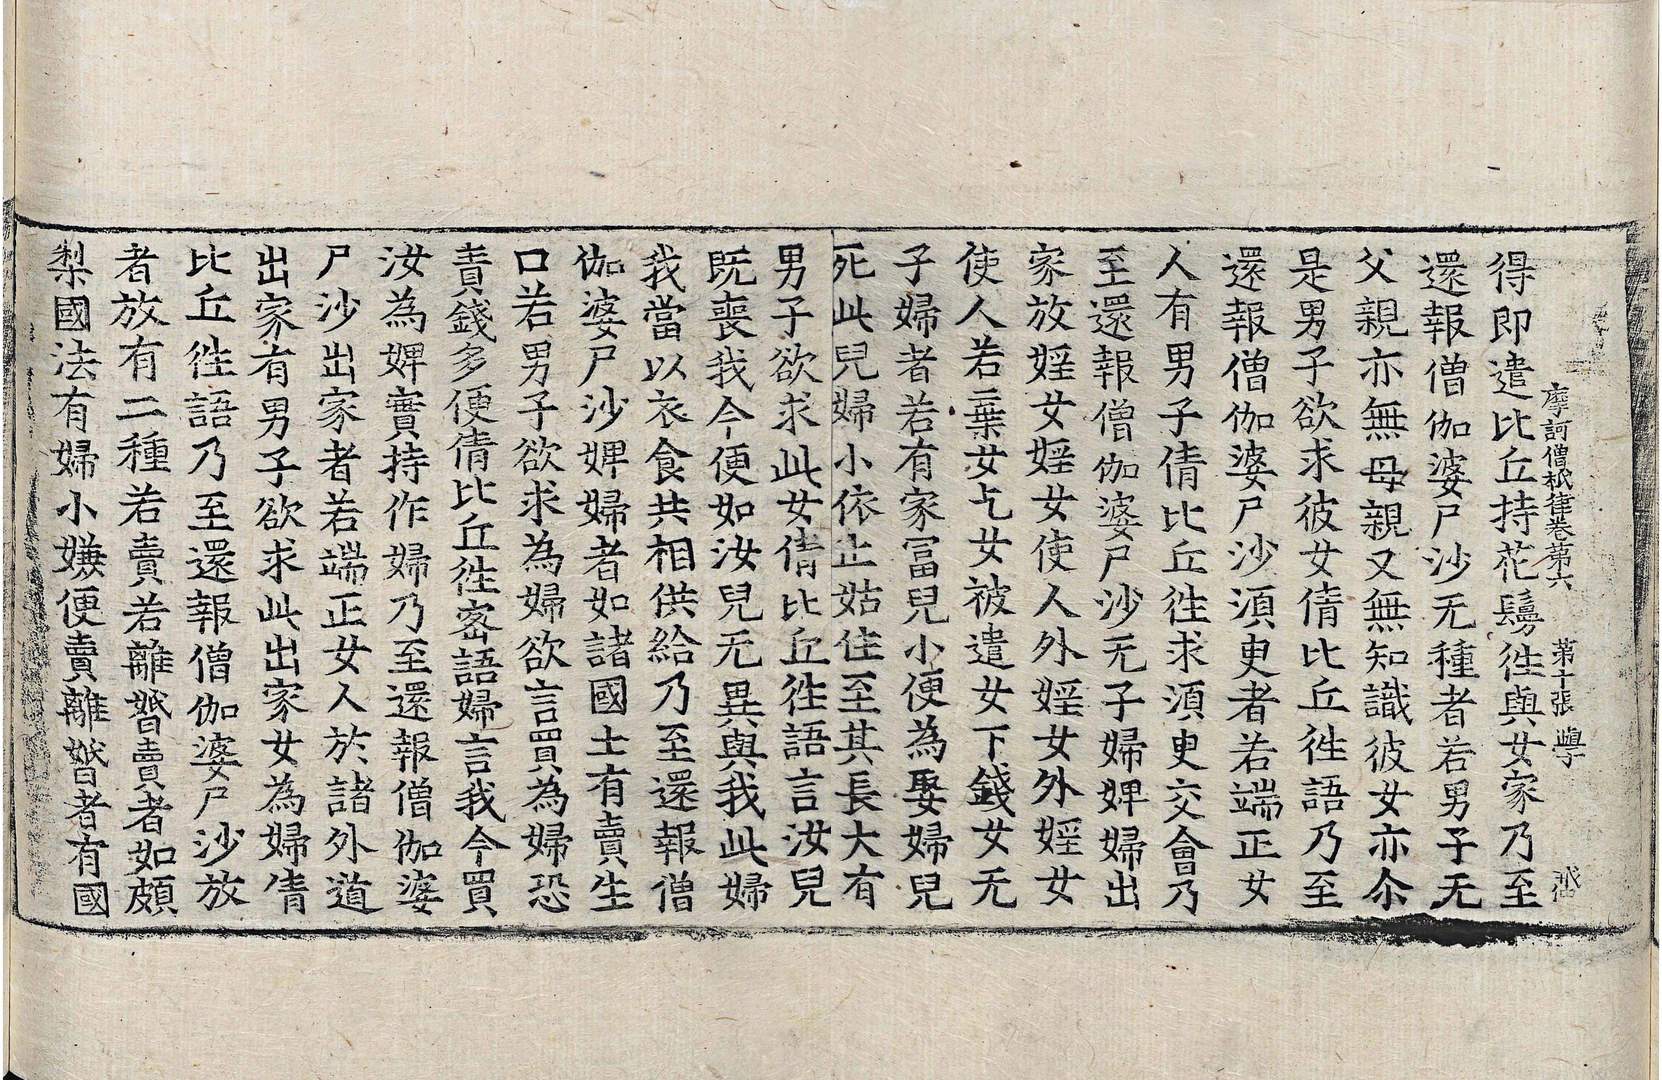 摩訶僧祇律卷第六 第十張 學
得即遣比丘持花鬘徃與女家乃至
還報僧伽婆尸沙无種者若男子无
父親亦無母親又無知識彼女亦尒
是男子欲求彼女倩比丘徃語乃至
還報僧伽婆尸沙湏更者若端正女
人有男子倩比丘徃求湏更交會乃
至還報僧伽婆尸沙无子婦婢婦出
家放婬女婬女使人外婬女外婬女
使人若棄女乞女被遣女下錢女无
子婦者若有家冨兒小便為娶婦兒
死此兒婦小依止姑住至其長大有
男子欲求此女倩比丘徃語言汝兒
既喪我今便如汝兒无異與我此婦
我當以衣食共相供給乃至還報僧
伽婆尸沙婢婦者如諸國土有賣生
口若男子欲求為婦欲言買為婦恐
責錢多便倩比丘徃密語婦言我今買
汝為婢實持作婦乃至還報僧伽婆
尸沙出家者若端正女人於諸外道
出家有男子欲求此出家女為婦倩
比丘徃語乃至還報僧伽婆尸沙放
者放有二種若賣若離婚賣者如頗
梨國法有婦小嫌便賣離婚者有國